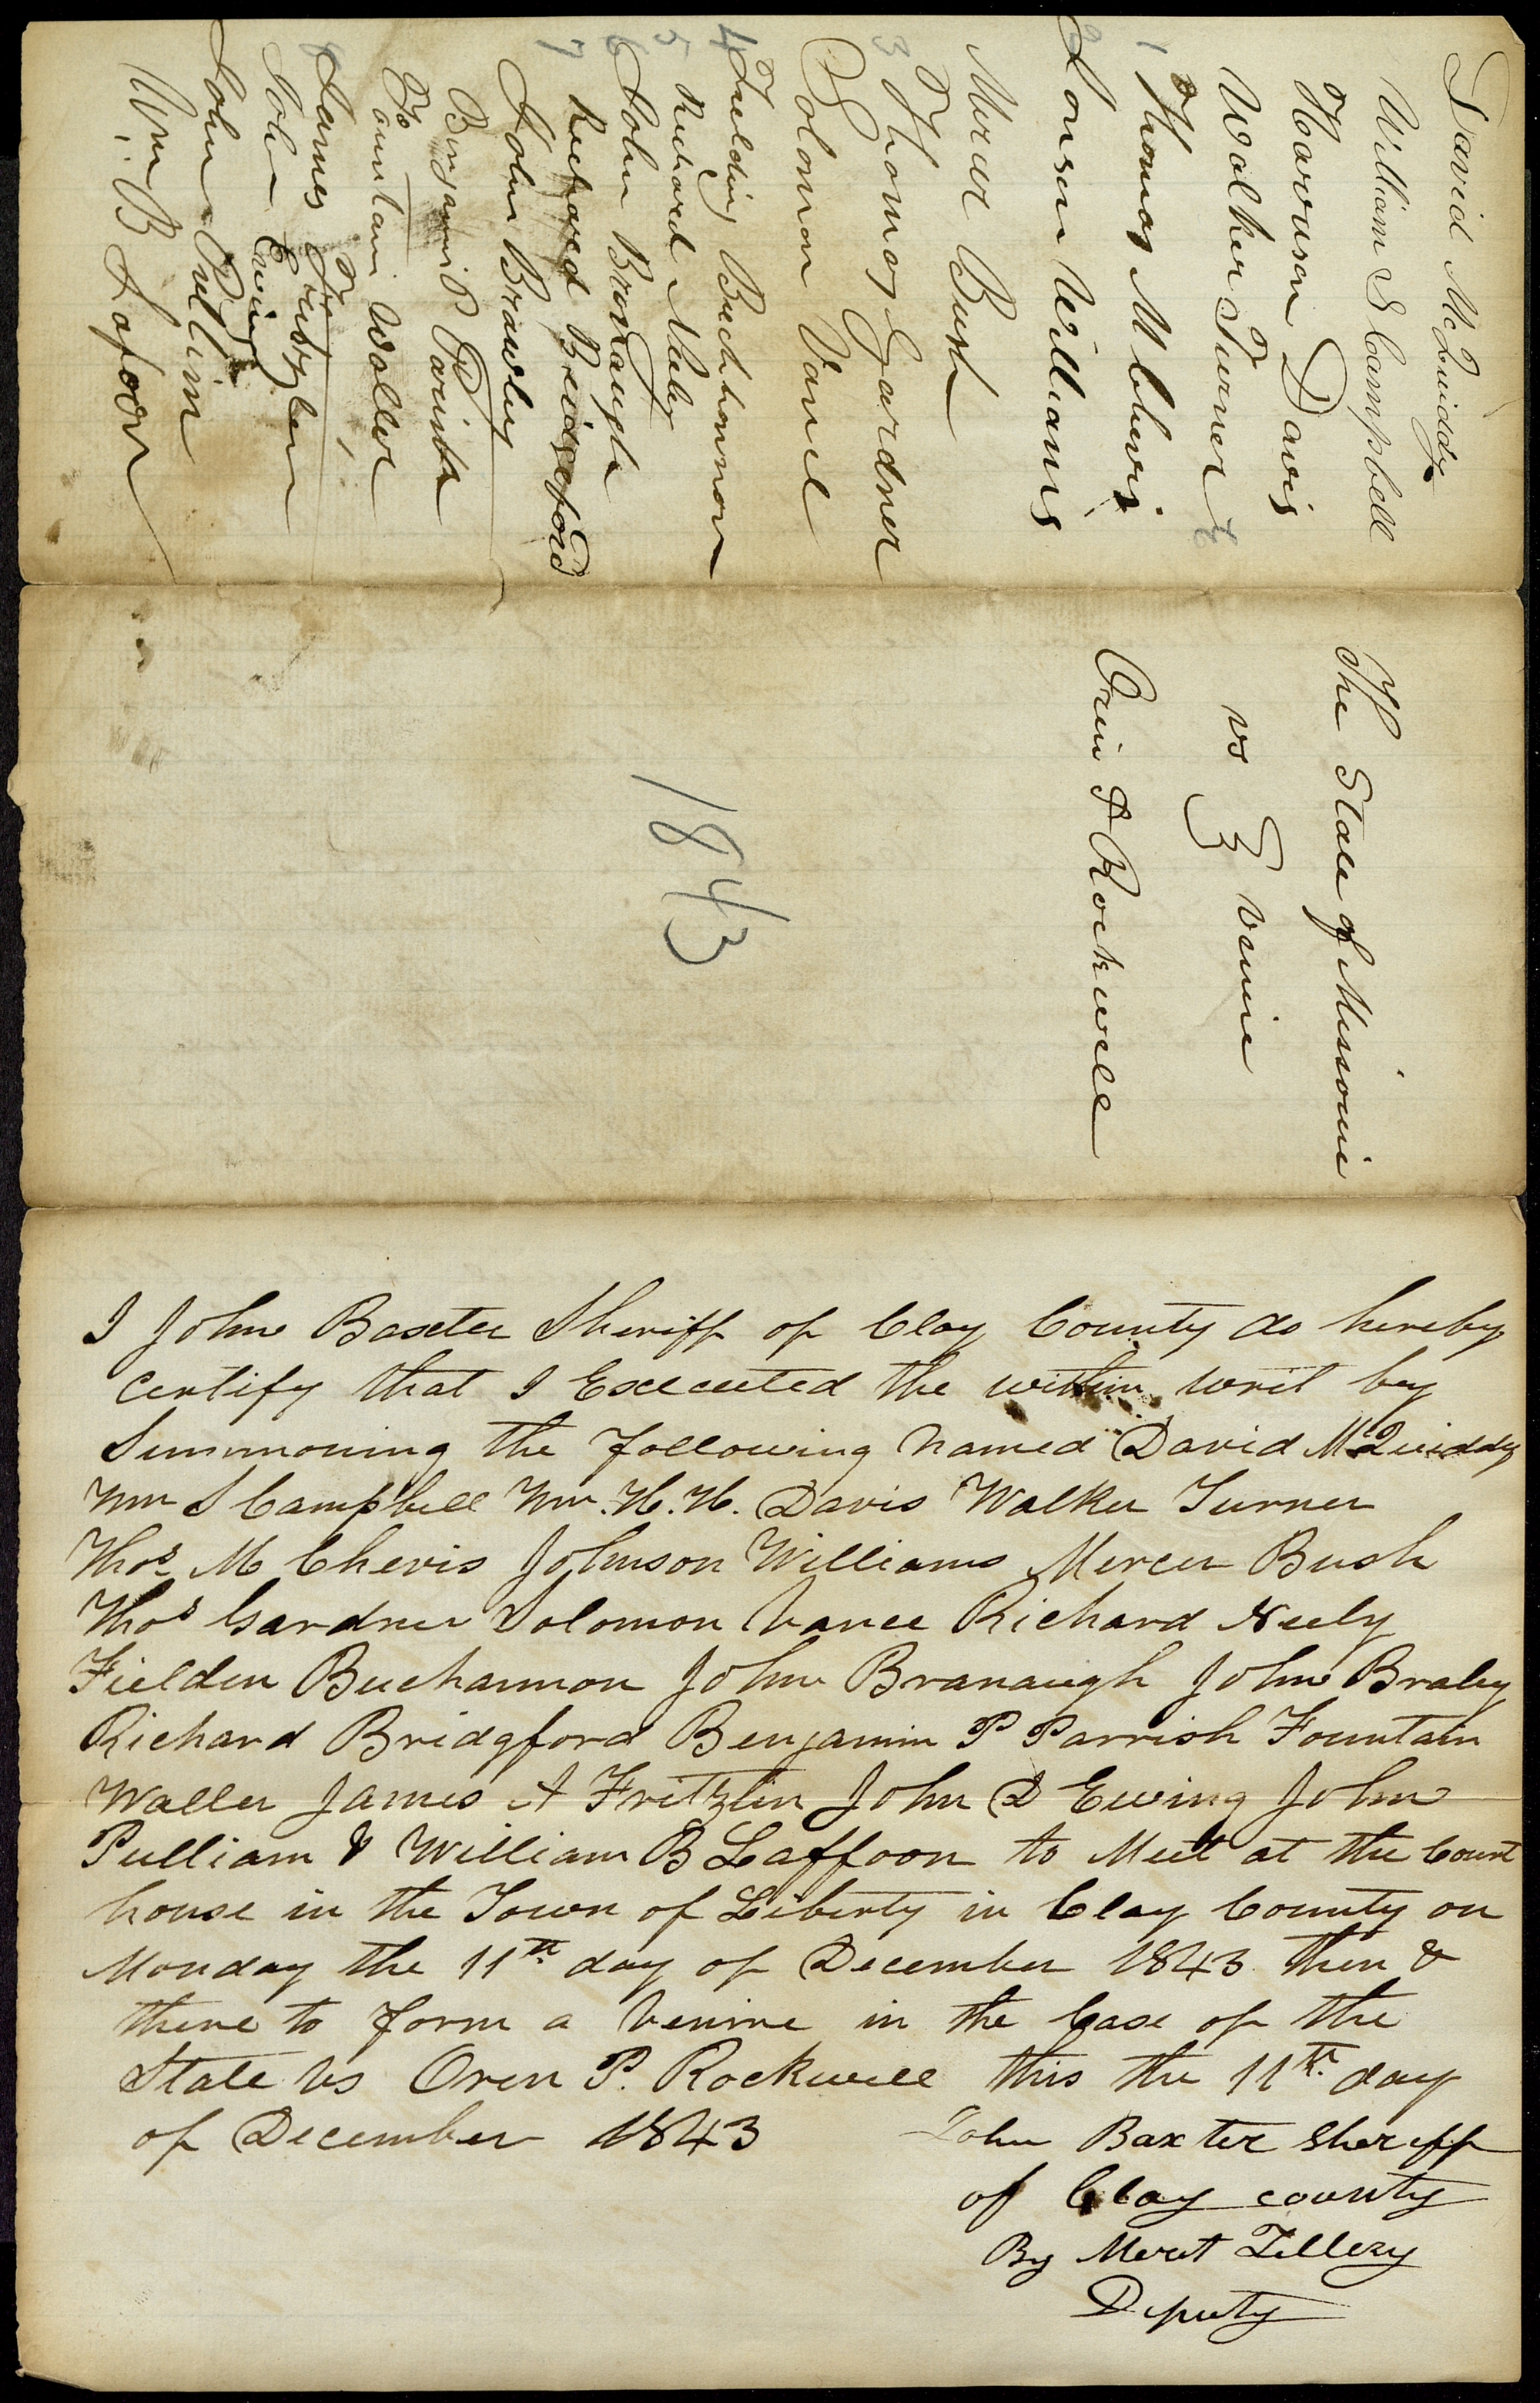 David McQuiddy
William S Campbell
Harrison Davis
Walker Turner
1 Thomas M Chevis
2 Jonson Williams
Mercer Bush
3 Thomas Gardner
Solomon Vance
4 Fielding Buchhannon
5 Richard Neeley
6 John Bronaugh
7 Richard Bridgeford
John Brawley
Benjamin P Parish
Fountain Waller
James Fritzlen
John Ewing
John Pullim
Wm B Lafoon
The State of Missouri
vs } venire
Orin P Rockwell
1843
I John Baxter Sheriff of Clay County do hereby
certify that I Executed the within writ by
Summoning the following named David McQuiddy
Wm S Campbell Wm. H. H. Davis Walker Turner
Thos M Chevis Johnson Williams Mercer Bush
Thos Gardner Solomon Vance Richard Neely
Fielden Buchannon John Branaugh John Braley
Richard Bridgford Benjamin P Parrish Fountain
Waller James A Fritzlin John D Ewing John
Pulliam & William B Laffoon to Meet at the Court
house in the Town of Liberty in Clay County on
Monday the 11th day of December 1843 then &
there to form a Venire in the Case of the
State vs Oren P. Rockwell this the 11th day
of December 1843
John Baxter Sheriff
of Clay county
By Merit Tillery
Deputy